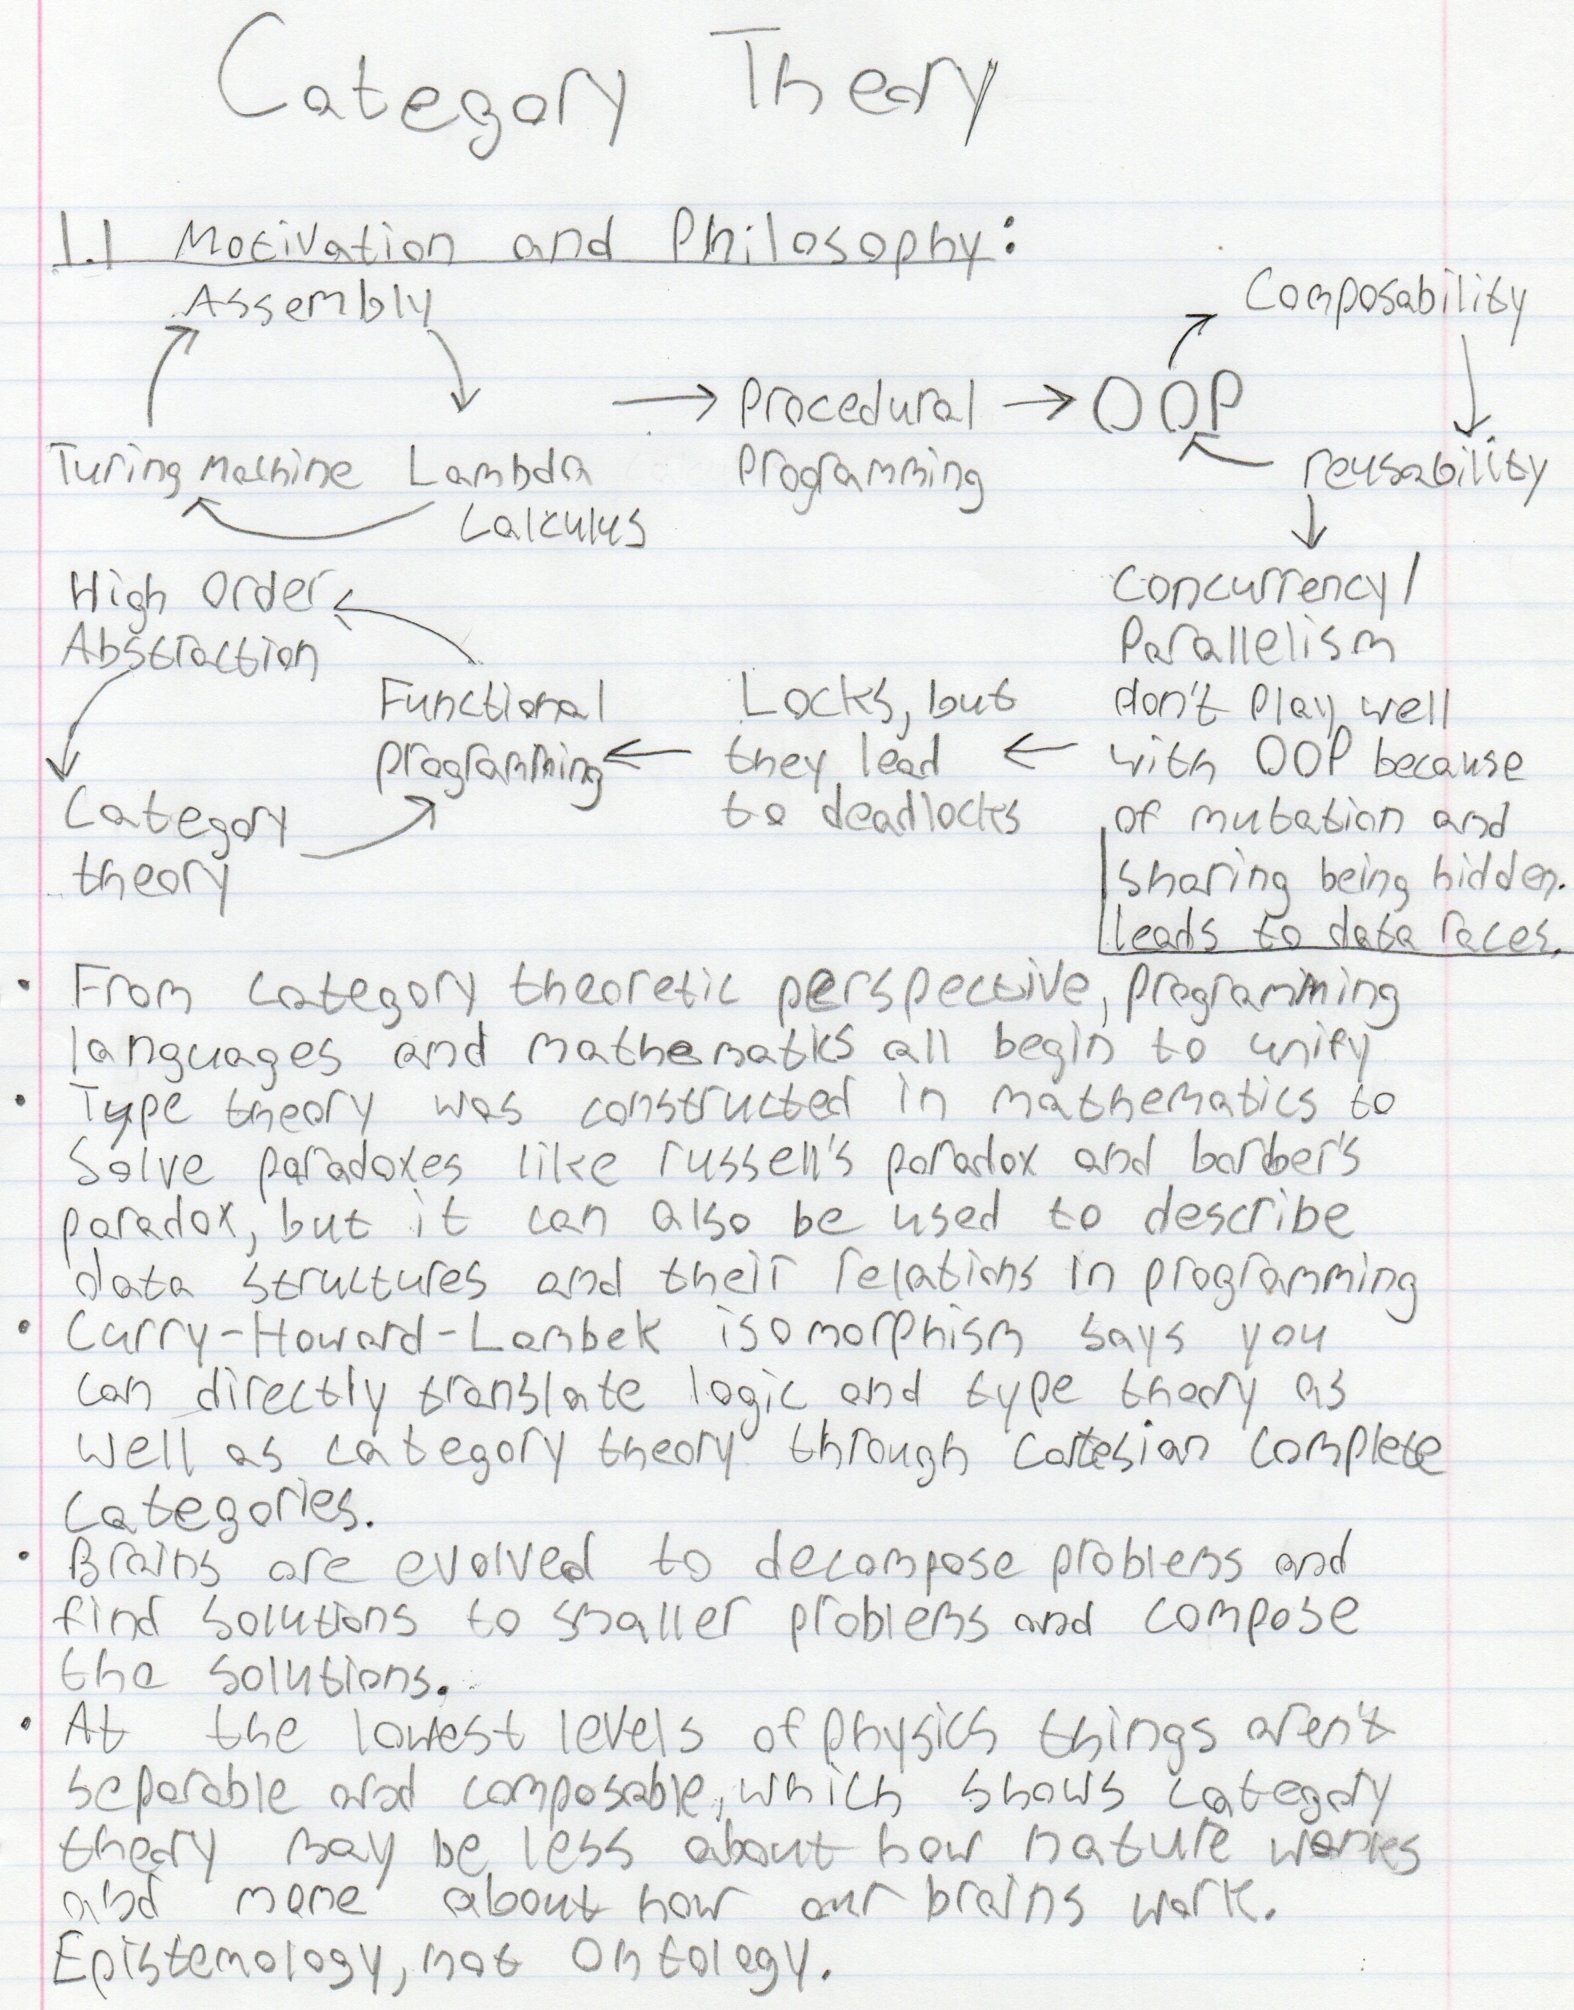 Category Theory
1.1 Motivation and Philosophy:
Assembly
Turing Machine
Lambda
Calculus
Procedural
Programming
OOP
Composability
reusability
Concurrency/
Parallelism
don't play well
with OOP because
of mutation and
sharing being hidden.
leads to data races.
Locks, but
they lead
to deadlocks
Functional
programming
High Order
Abstraction
Category
theory
• From category theoretic perspective, programming
languages and mathematics all begin to unify
• Type theory was constructed in mathematics to
solve paradoxes like russell's paradox and barber's
paradox, but it can also be used to describe
data structures and their relations in programming
• Curry-Howard-Lambek isomorphism says you
can directly translate logic and type theory as
well as category theory through cartesian complete
categories.
• Brains are evolved to decompose problems and
find solutions to smaller problems and compose
the solutions.
• At the lowest levels of physics things aren't
separable and composable, which shows category
theory may be less about how nature works
and more about how our brains work.
Epistemology, not Ontology.